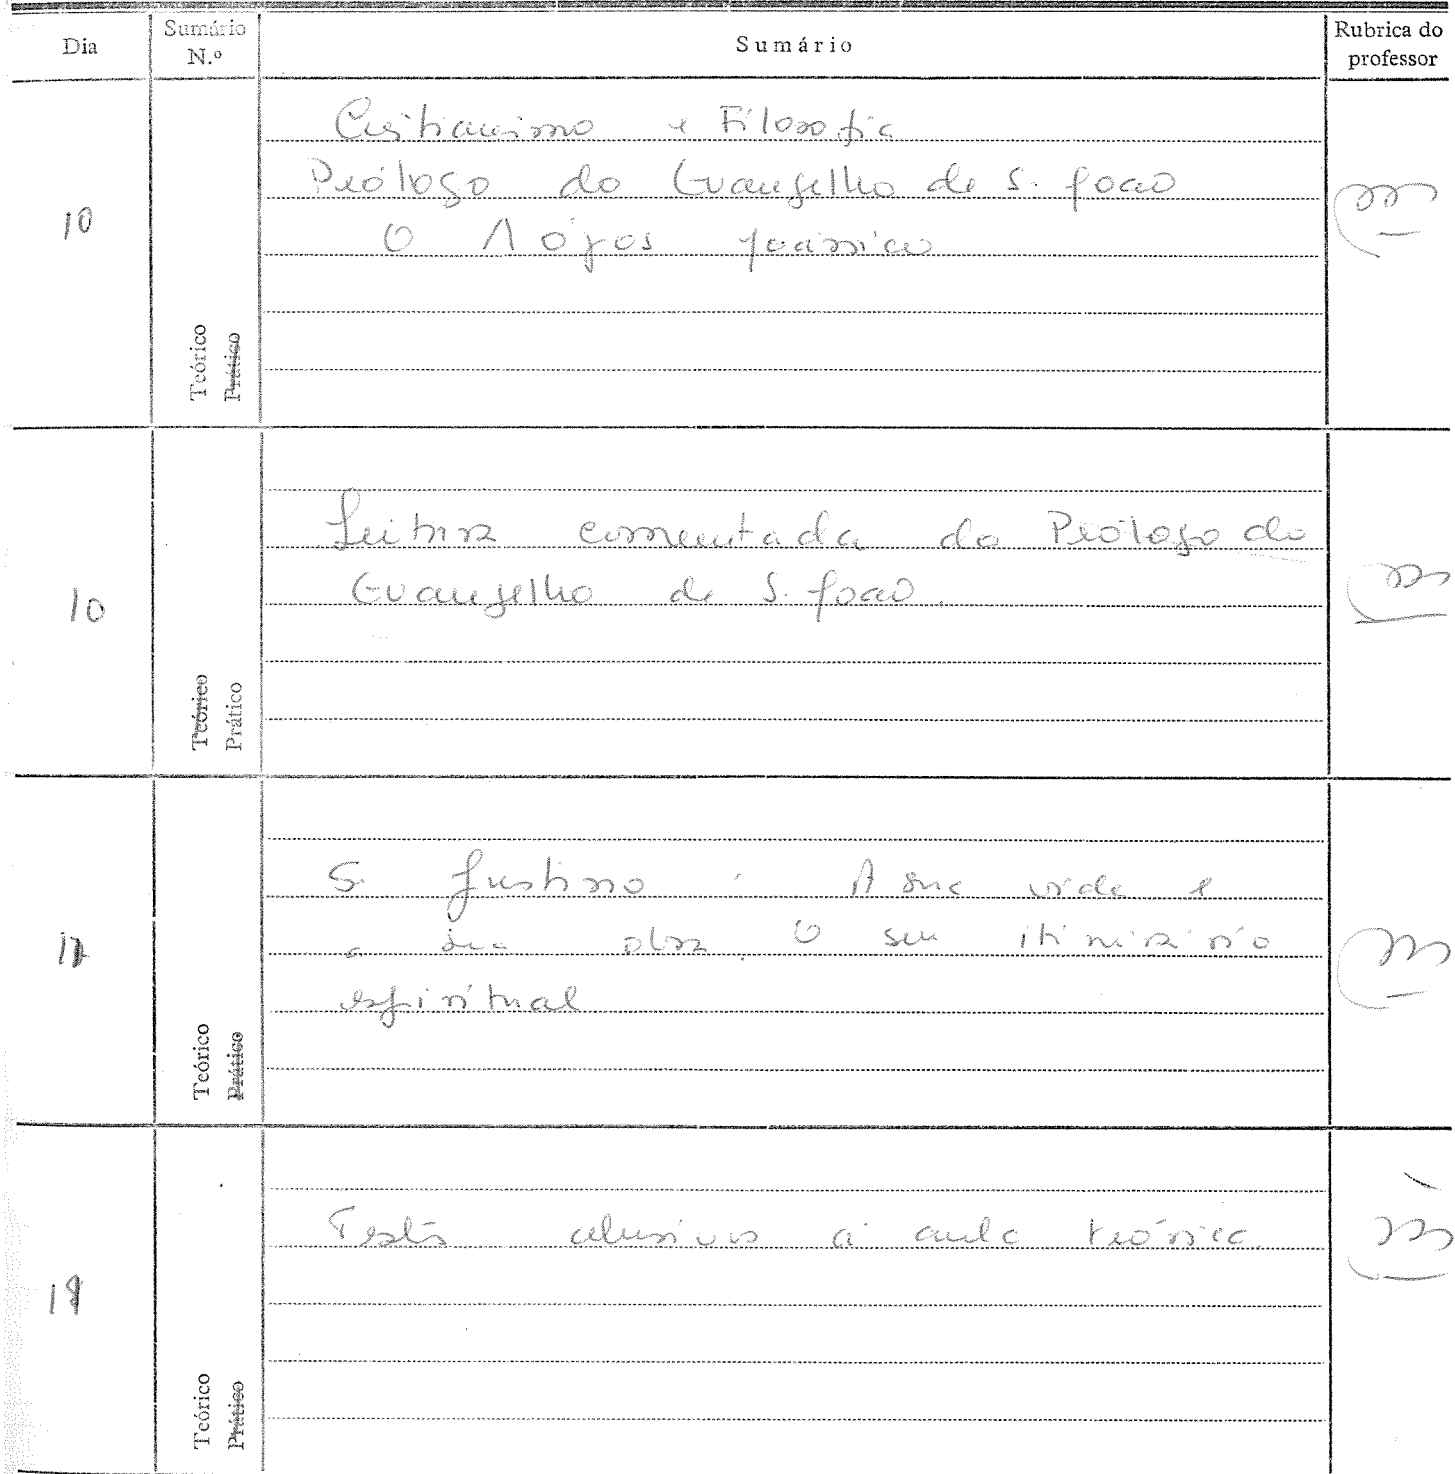 Dia
Sumário
N.º
Sumário
Rubrica do
professor
10
Cristianismo e Filosofia
Prólogo do Evangelho de S. João
O Λόγos joânico
Teórico
Prático
10
Leitura comentada do Prólogo do
Evangelho de S. João.
Teórico
Prático
S. Justino : A sua vida e
a sua obra. O seu itinerário
espiritual
Teórico
Prático
Textos alusivos à aula teórica.
Teórico
Prático